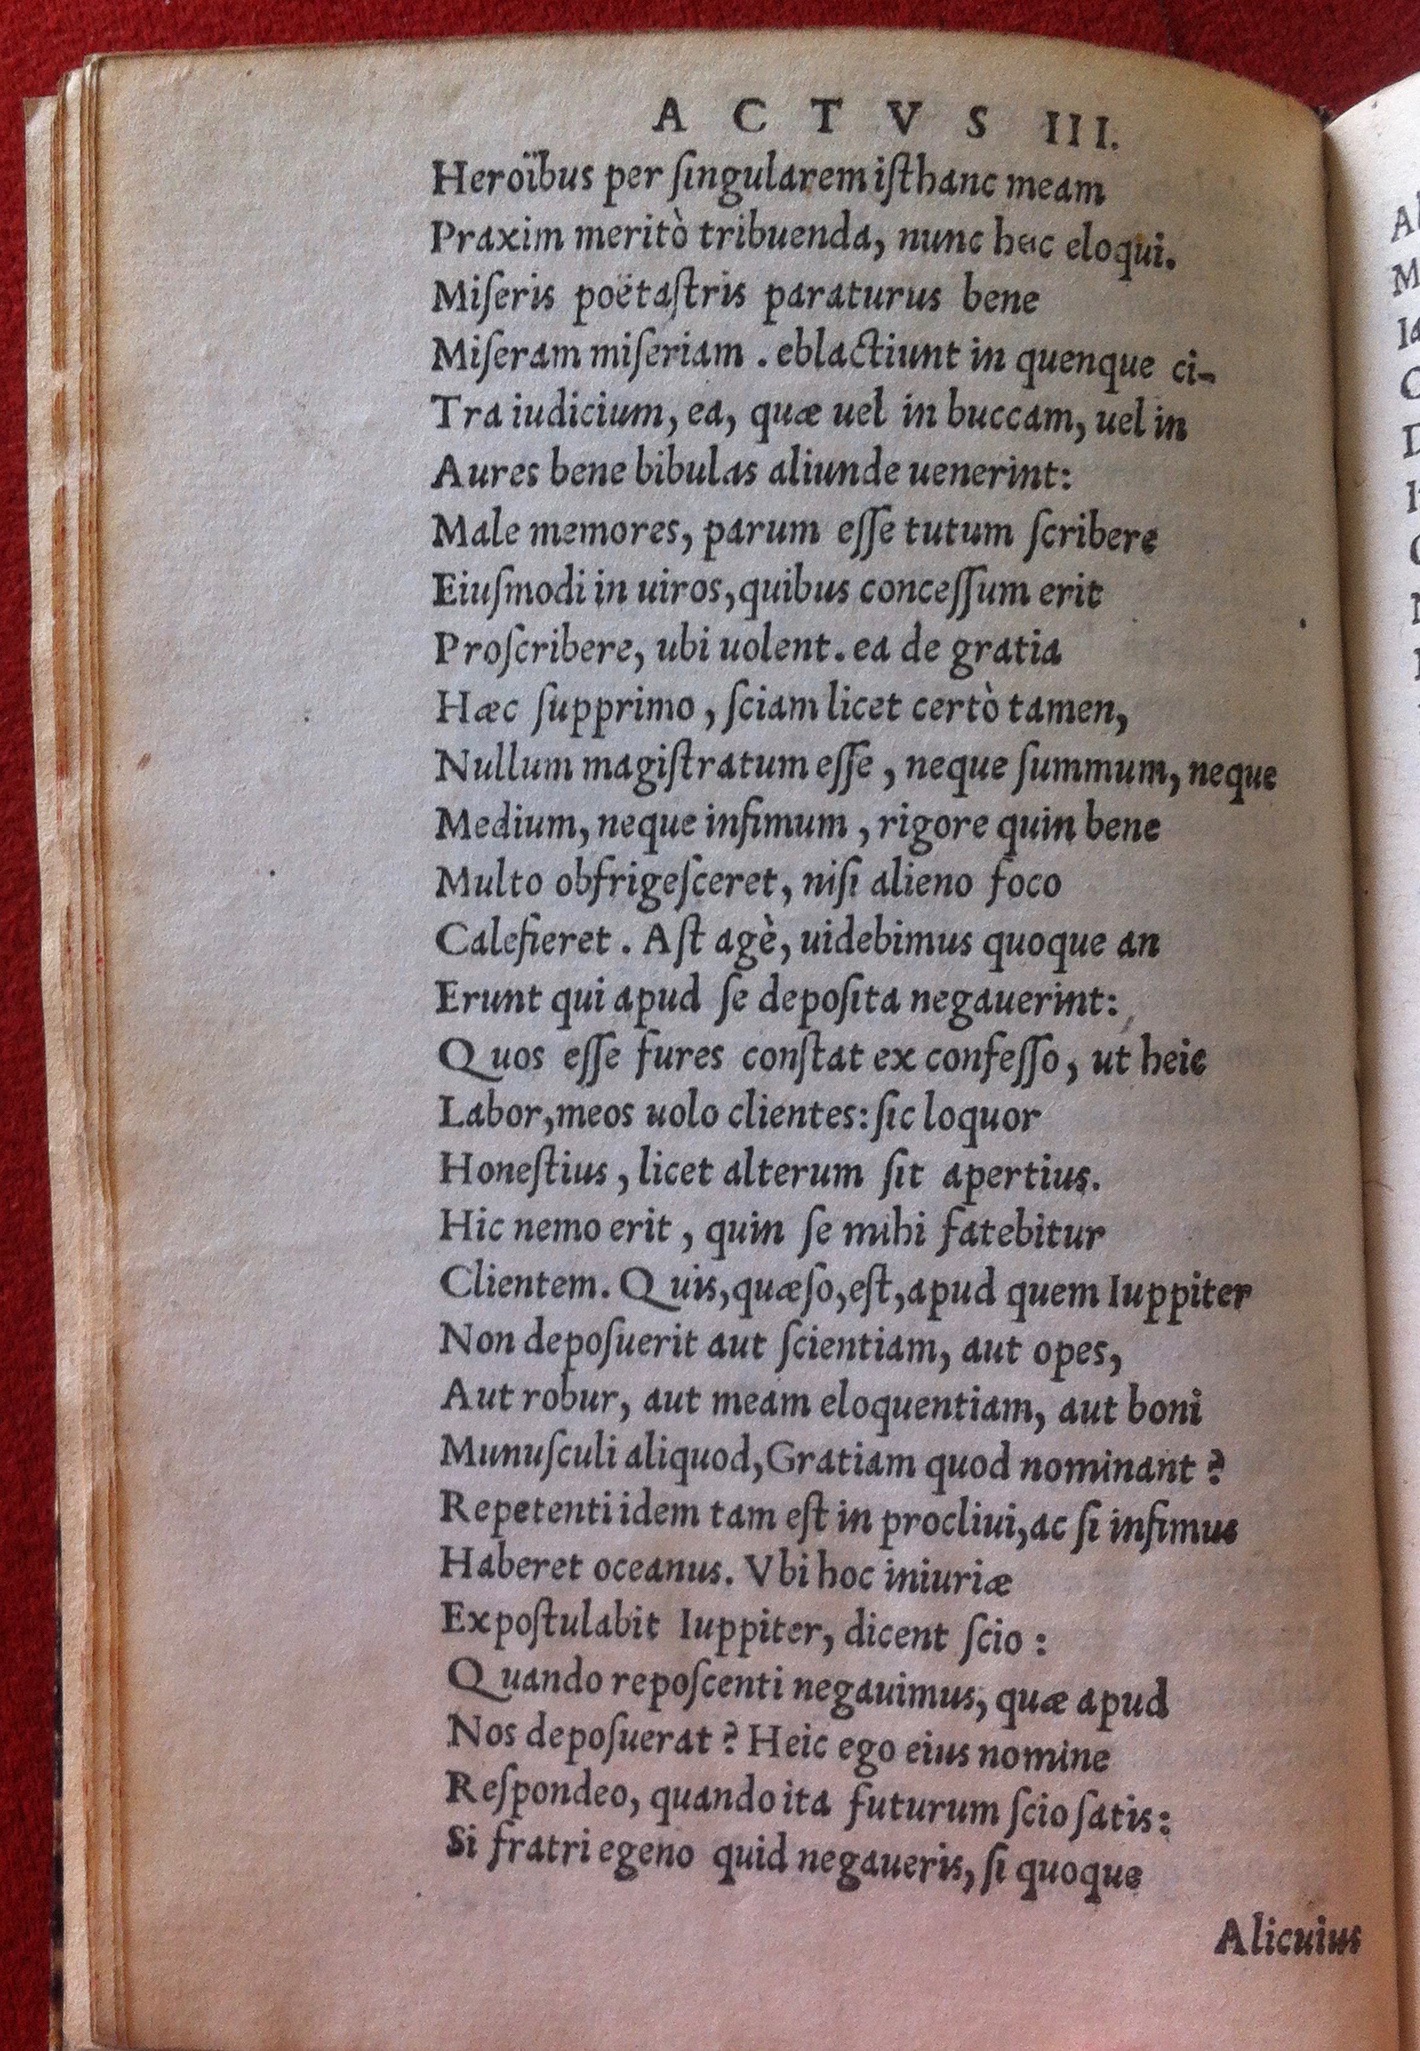 ACTVS III.
Heroïbus per ſingularem iſthanc meam
Praxim meritò tribuenda, nunc hac eloqui.
Miſeris poëtaſtris paraturus bene
Miſeram miſeriam . eblactiunt in quenque ci-
Tra iudicium, ea, quæ uel in buccam, uel in
Aures bene bibulas aliunde uenerint:
Male memores, parum eſſe tutum ſcribere
Eiuſmodi in uiros, quibus conceſſum erit
Proſcribere, ubi uolent. ea de gratia
Hæc ſupprimo, ſciam licet certò tamen,
Nullum magiſtratum eſſe, neque ſummum, neque
Medium, neque infimum, rigore quin bene
Multo obfrigeſceret, niſi alieno foco
Calefieret. Aſt agè, uidebimus quoque an
Erunt qui apud ſe depoſita negauerint:
Quos eſſe fures conſtat ex confeſſo, ut heic
Labor, meos uolo clientes: ſic loquor
Honeſtius, licet alterum ſit apertius.
Hic nemo erit, quin ſe mihi fatebitur
Clientem. Quis, quæſo, eſt, apud quem Iuppiter
Non depoſuerit aut ſcientiam, aut opes,
Aut robur, aut meam eloquentiam, aut boni
Munuſculi aliquod, Gratiam quod nominant?
Repetenti idem tam eſt in procliui, ac ſi infimus
Haberet oceanus. Vbi hoc iniuriæ
Expoſtulabit Iuppiter, dicent ſcio:
Quando repoſcenti negauimus, quæ apud
Nos depoſuerat? Heic ego eius nomine
Reſpondeo, quando ita futurum ſcio ſatis:
Si fratri egeno quid negaueris, ſi quoque
Alicuius